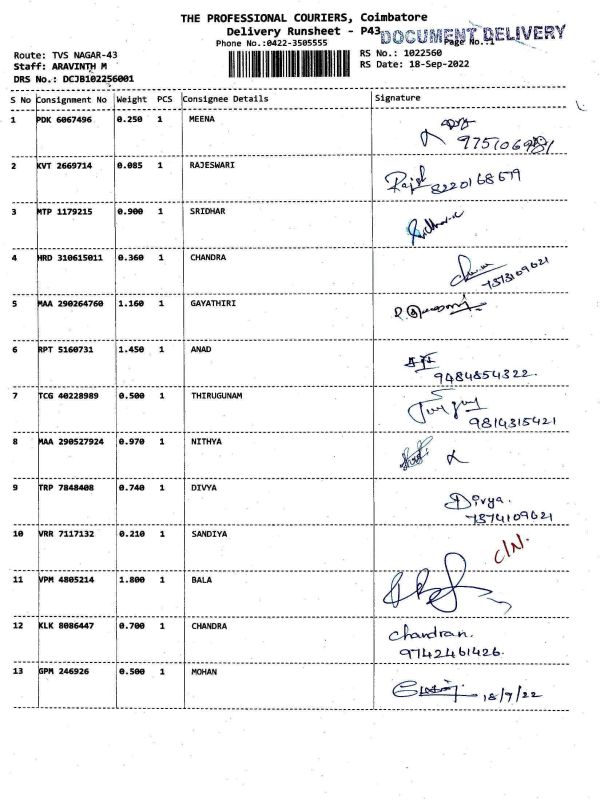 THE PROFESSIONAL COURIERS, Coimbatore
Delivery Runsheet - P43
DOCUMENT DELIVERY
Phone No.:0422-3505555
Page No.:1
Route: TVS NAGAR-43
RS No.: 1022560
Staff: ARAVINTH M
RS Date: 18-Sep-2022
DRS No.: DCJB102256001
S No Consignment No Weight PCS Consignee Details Signature
1 PDK 6067496 0.250 1 MEENA
2 KVT 2669714 0.085 1 RAJESWARI
8220168679
3 MTP 1179215 0.900 1 SRIDHAR
4 HRD 310615011 0.360 1 CHANDRA
7373109021
5 MAA 290264760 1.160 1 GAYATHIRI
6 RPT 5160731 1.450 1 ANAD
9484854322.
7 TCG 40228989 0.500 1 THIRUGUNAM
9814315421
8 MAA 290527924 0.970 1 NITHYA
9 TRP 7848408 0.740 1 DIVYA
Divya.
7374109021
10 VRR 7117132 0.210 1 SANDIYA
C/N.
11 VPM 4805214 1.800 1 BALA
12 KLK 8086447 0.700 1 CHANDRA
chandran.
9742461426.
13 GPM 246926 0.500 1 MOHAN
18/9/22